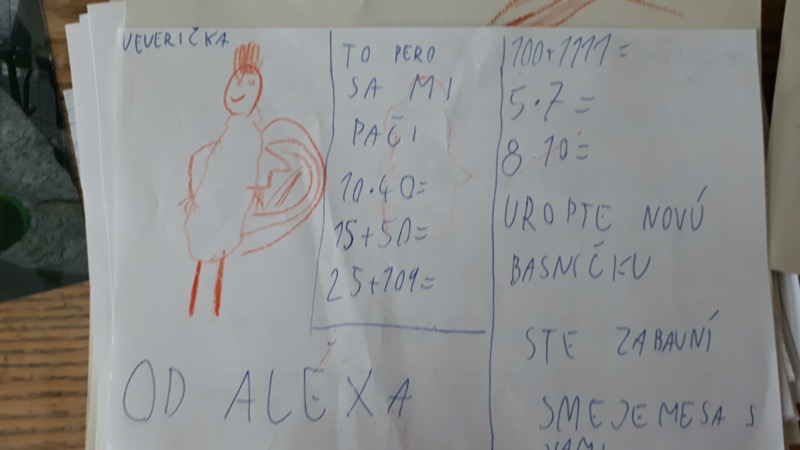 VEVERIČKA
TO PERO
SA MI
PAČI
10·40=
15+50=
25+109=
OD ALEXA
100+1111=
5·7=
8·10=
UROPTE NOVÚ
BASNIČKU
STE ZABAVNÍ
SMEJEMESA S
VAMI